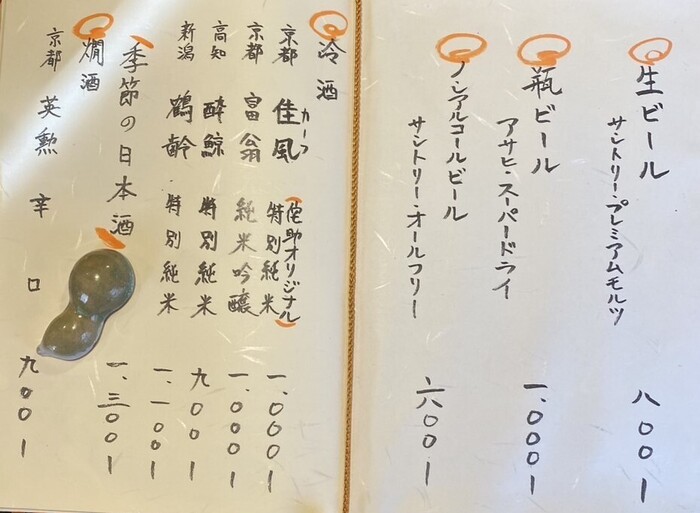 生ビール
サントリー・プレミアムモルツ 八〇〇ー
瓶ビール
アサヒ・スーパードライ 一、〇〇〇ー
ノンアルコールビール
サントリー・オールフリー 六〇〇ー
冷酒
カーフ
京都 佳風 特別純米 一、〇〇〇ー
京都 富翁 純米吟醸 一、〇〇〇ー
高知 酔鯨 特別純米 九〇〇ー
新潟 鶴齢 特別純米 一、一〇〇ー
季節の日本酒 一、三〇〇ー
燗酒
京都 英勲 辛口 九〇〇ー